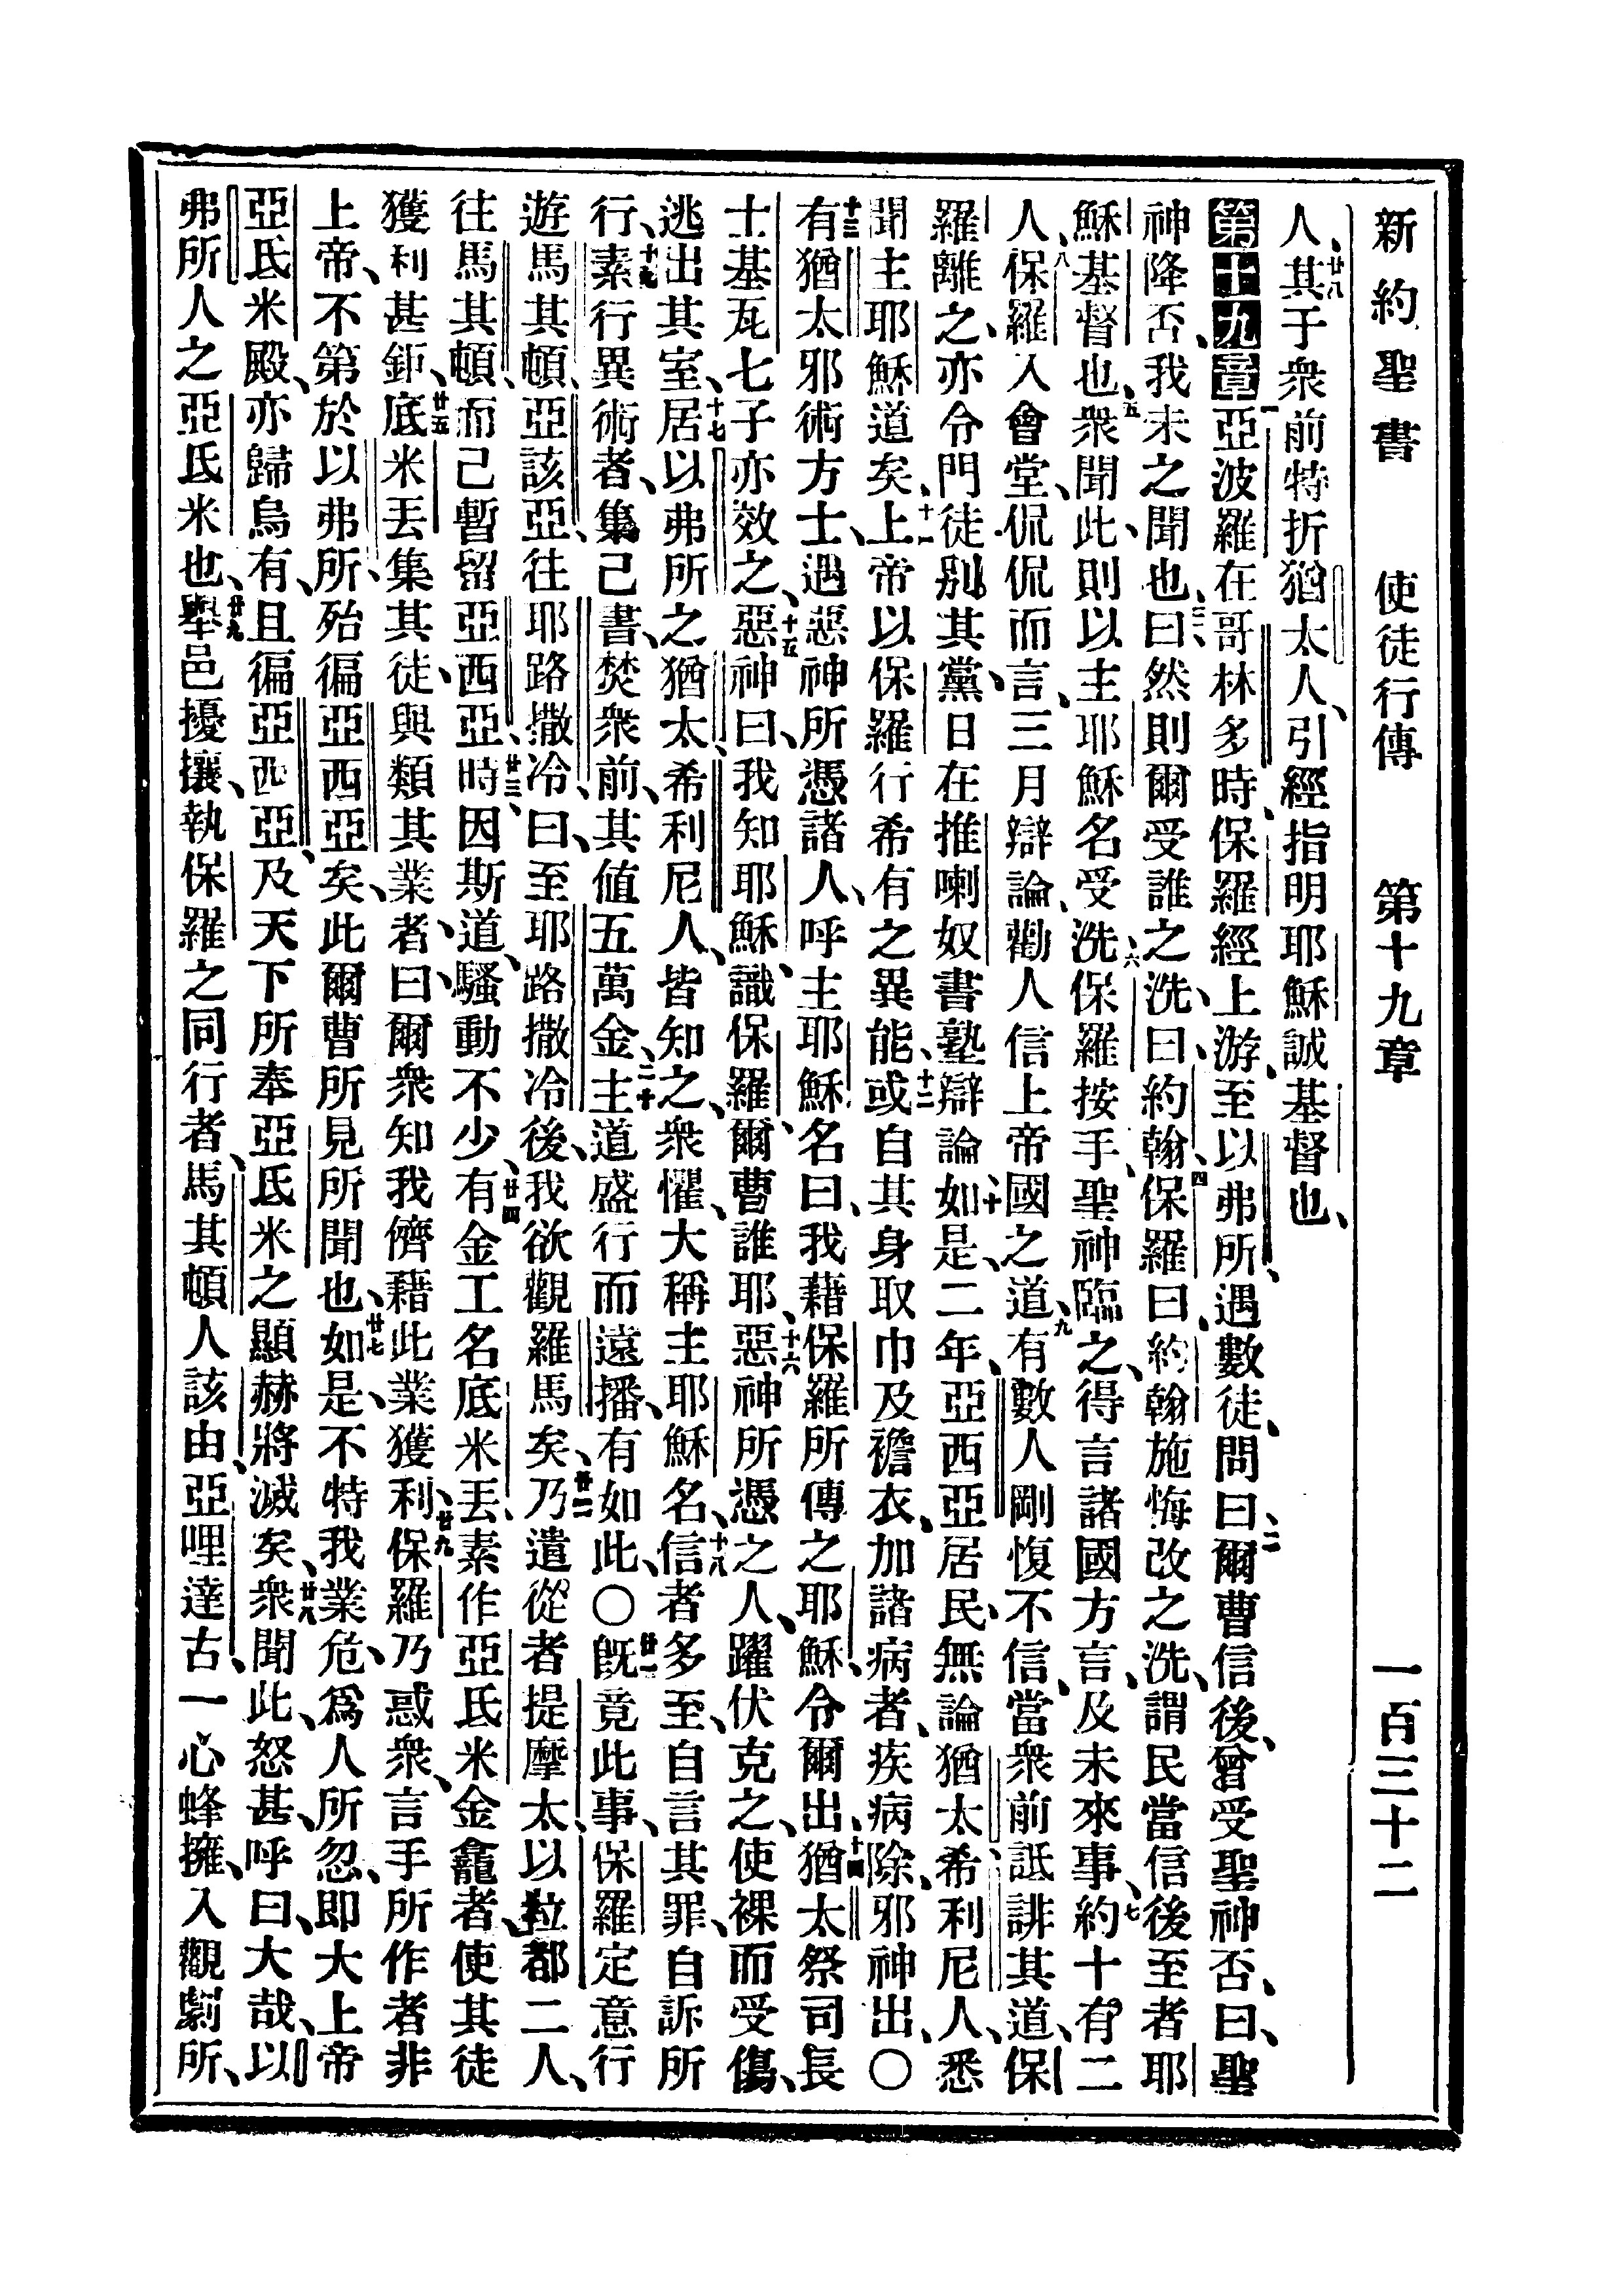 新約聖書 使徒行傳 第十九章 一百三十二
人、廿八其于衆前特折猶太人、引經指明耶穌誠基督也、
第十九章一亞波羅在哥林多時、保羅經上游、至以弗所、遇數徒、問曰、二爾曹信後、曾受聖神否、曰、聖
神降否、我未之聞也、三曰、然則爾受誰之洗、曰、約翰、四保羅曰、約翰施悔改之洗、謂民當信後至者耶
穌基督也、五衆聞此、則以主耶穌名受洗、六保羅按手、聖神臨之、得言諸國方言、及未來事、七約十有二
人、八保羅入會堂、侃侃而言、三月辯論、勸人信上帝國之道、九有數人剛愎不信、當衆前詆誹其道、保
羅離之、亦令門徒別其黨、日在推喇奴書塾辯論、十如是二年、亞西亞居民、無論猶太、希利尼人、悉
聞主耶穌道矣、十一上帝以保羅行希有之異能、十二或自其身取巾及襜衣、加諸病者、疾病除、邪神出、〇
十三有猶太邪術方士、遇惡神所憑諸人、呼主耶穌名曰、我藉保羅所傳之耶穌、令爾出、十四猶太祭司長
士基瓦七子亦效之、十五惡神曰、我知耶穌、識保羅、爾曹誰耶、十六惡神所憑之人、躍伏克之、使裸而受傷、
逃出其室、十七居以弗所之猶太、希利尼人、皆知之、衆懼、大稱主耶穌名、十八信者多至、自言其罪、自訴所
行、十九素行異術者、集己書、焚衆前、其值五萬金、二十主道盛行而遠播、有如此、〇廿一既竟此事、保羅定意行
遊馬其頓、亞該亞、往耶路撒冷、曰、至耶路撒冷後、我欲觀羅馬矣、廿二乃遣從者提摩太、以拉都二人、
往馬其頓、而己暫留亞西亞、廿三時因斯道、騷動不少、廿四有金工名底米丟、素作亞氐米金龕者、使其徒
獲利甚鉅、廿五底米丟集其徒、與類其業者、曰、爾衆知我儕藉此業獲利、廿九保羅乃惑衆、言手所作者非
上帝、不第於以弗所、殆徧亞西亞矣、此爾曹所見所聞也、廿七如是、不特我業危、爲人所忽、即大上帝
亞氐米殿、亦歸烏有、且徧亞西亞、及天下所奉亞氐米之顯赫將滅矣、廿八衆聞此、怒甚、呼曰、大哉、以
弗所人之亞氐米也、廿九舉邑擾攘、執保羅之同行者、馬其頓人該由、亞哩達古、一心蜂擁、入觀劇所、